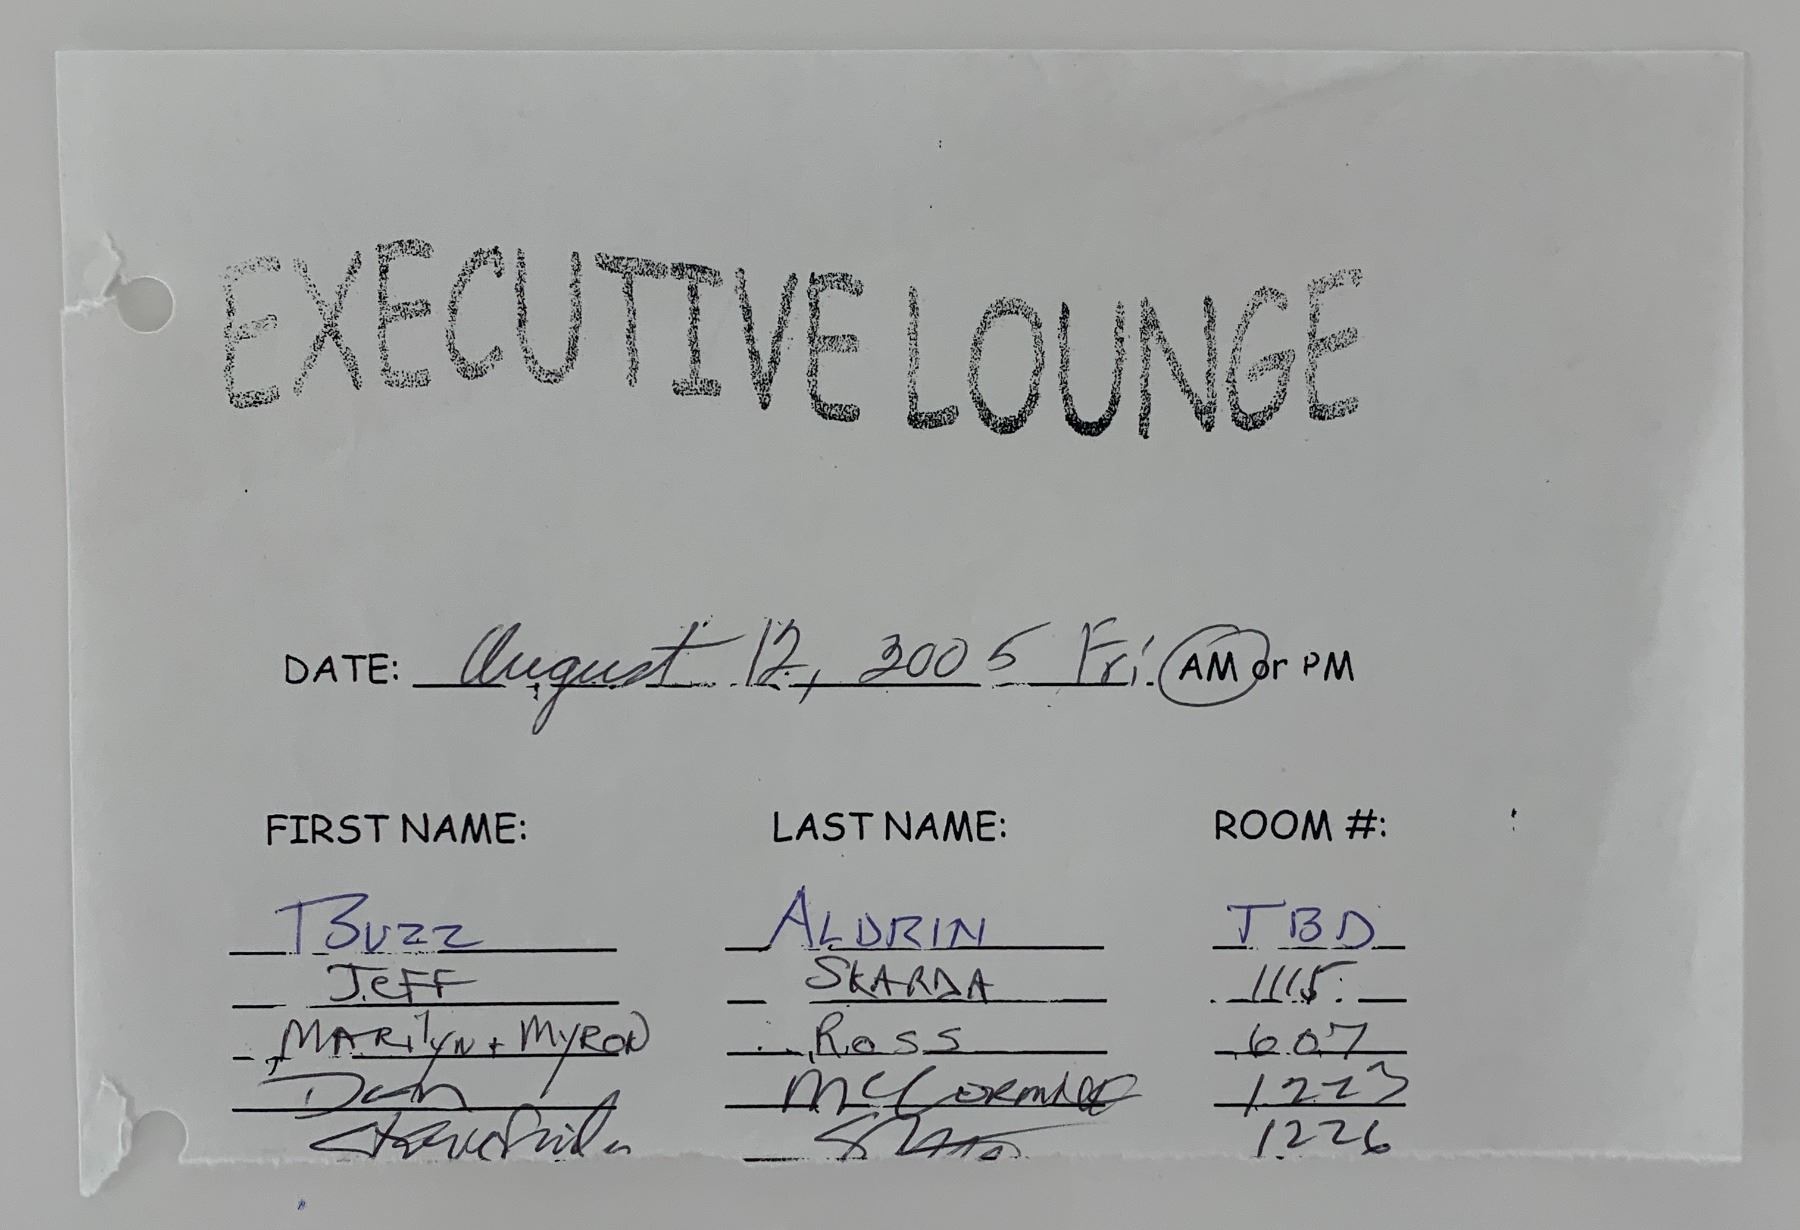 EXECUTIVE LOUNGE
DATE: August 12, 2005 Fri. AM or PM
FIRST NAME: LAST NAME: ROOM #:
BUZZ ALDRIN TBD
JEFF SKARDA 1115
MARILYN + MYRON ROSS 607
Dan McCormick 1223
1226